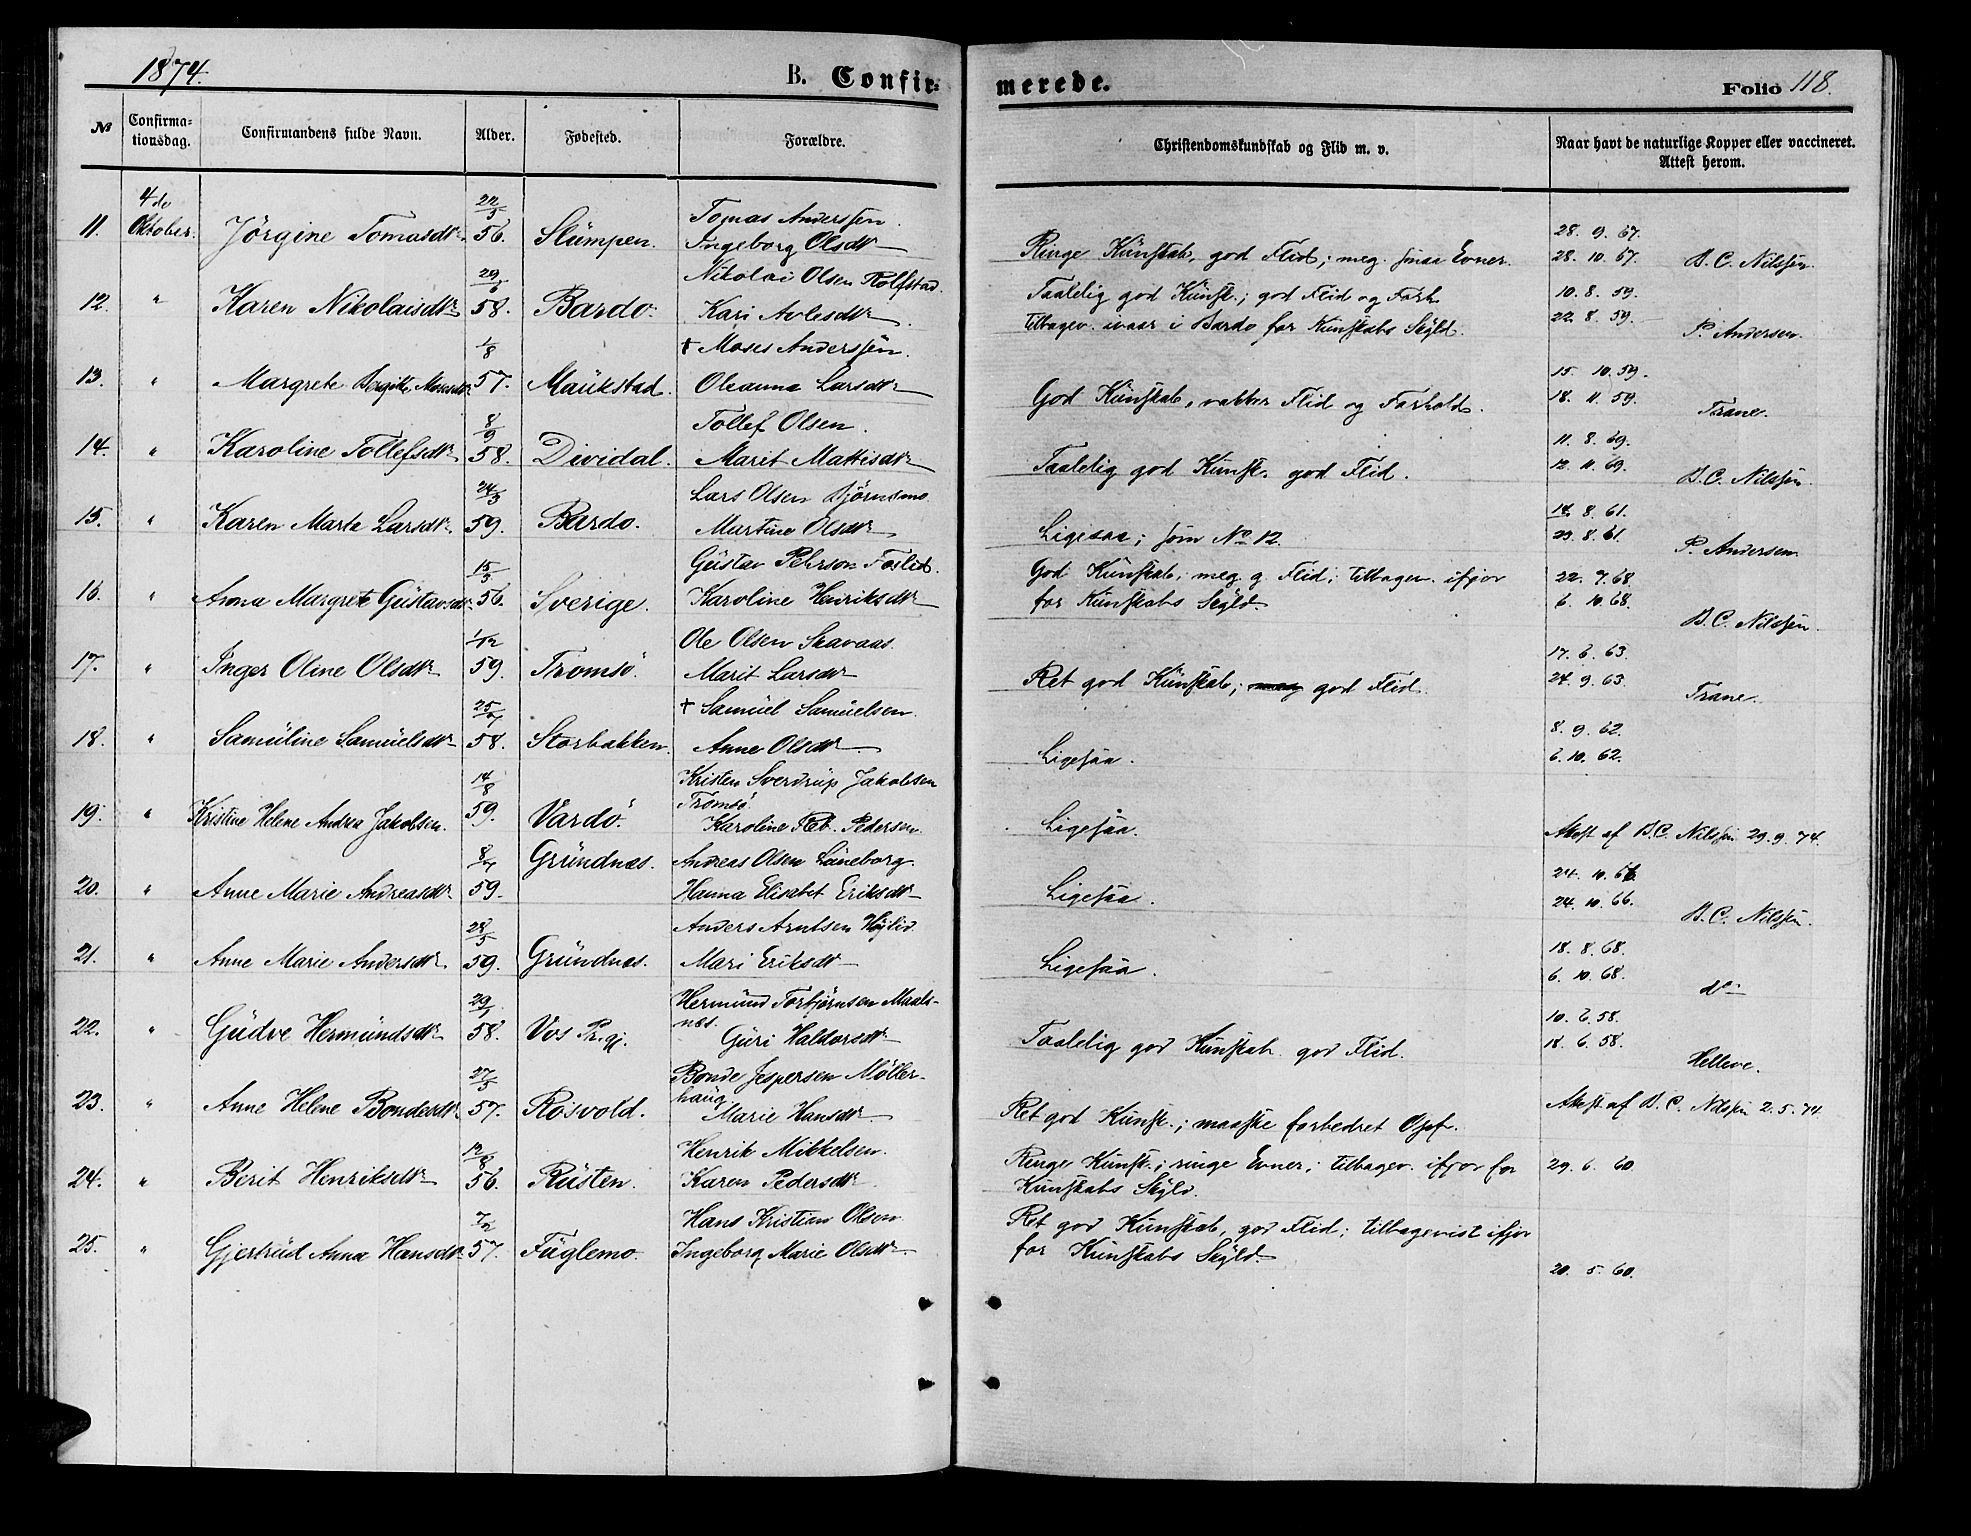 1874.
B. Confir=
merede.
Folio 118.
№
Confirma-
tionsdag.
Confirmandens fulde Navn.
Alder.
Fødested.
Forældre.
Christendomskundskab og Flid m. v.
Naar havt de naturlige Kopper eller vaccineret.
Attest herom.
11. 4de Oktober. Jörgine Tomasdtr 22/5 56. Slümpen.
Tomas Anderssen.
Ingeborg Olsdtr
Ringe Künskab, god Flid; meg. smaa Evner.
28. 9. 67.
28. 10. 67. B. C. Nilssen.
12. " Karen Nikolaisdtr 29/6 58. Bardo.
Nikolai Olsen Rolfstad.
Kari Avlesdtr
Taalelig god Künsk.; god Flid og Forh.
tilbagev. ivaar i Bardo for Kunskabs Skyld.
10. 8. 59.
22. 8. 59. P. Andersen.
13. " Margrete Bergitte Mosesdtr 1/8 57. Maükstad.
† Moses Anderssen.
Oleanna Larsdtr
God Künskab, vakker Flid og Forhold.
15. 10. 59.
18. 11. 59. Trane.
14. " Karoline Tollefsdtr 8/9 58. Dividal.
Tollef Olsen.
Marit Mattisdtr
Taalelig god Künsk. god Flid.
11. 8. 69.
12. 11. 69. B. C. Nilssen.
15. " Karen Marta Larsdtr. 24/3 59. Bardo.
Lars Olsen Björnsmo
Martine Olsdtr
Ligesaa; som No 12.
14. 8. 61.
29. 8. 61. P. Andersen.
16. " Anna Margrete Güstavsdtr. 15/3 56. Sverige.
Güstav Pehrson Foslid.
Karoline Henriksdtr
God Künskab; meg. g. Flid; tilbagev. ifjor
for Künskabs Skyld.
22. 7. 68.
6. 10. 68. B. C. Nilssen.
17. " Inger Oline Olsdtr 1/12 59. Tromsö.
Ole Olsen Skavaas.
Marit Larsdtr
Ret god Künskab; meg god Flid.
17. 6. 63.
24. 9. 63. Trane.
18. " Samüline Samüelsdtr 25/7 58. Storbakken.
† Samüel Samüelsen.
Anne Olsdtr
Ligesaa.
8. 9. 62.
6. 10. 62.
19. " Kristine Helene Andrea Jakobsen. 14/8 59. Vardö.
Kristen Sverdrüp Jakobsen
Tromsö.
Karoline Reb. Pedersen.
Ligesaa.
Attest af B. C. Nilssen 29. 9. 74.
20. " Anne Marie Andreasdtr 8/7 59. Gründnes.
Andreas Olsen Lüneborg.
Hanna Elisabet Eriksdtr
Ligesaa.
24. 10. 66
24. 10. 66. B. C. Nilssen.
21. " Anne Marie Andersdtr. 28/5 59. Gründnes.
Anders Arntsen Höglid
Mari Eriksdtr
Ligesaa.
18. 8. 68.
6. 10. 68. do
22. " Güdve Hermündsdtr 29/1 58. Vos Pr.gj.
Hermünd Torbjørnsen Maals-
nes.
Güri Haldorsdtr
Taalelig god Künskab. god Flid.
10. 6. 58.
18. 6. 58. Helleve.
23. " Anne Helene Bondesdtr 27/5 57. Rosvold.
Bonde Jespersen Möller-
haüg
Marie Hansdtr
Ret god Kunsk.; maaske forbedret Opf.
Attest af B. C. Nilssen 2. 5. 74.
24. " Berit Henriksdtr 12/8 56. Rüsten.
Henrik Mikkelsen.
Karen Pedersdtr
Ringe Künsk.; ringe Evner; tilbagev. ifjor for
Künskabs Skyld.
29. 6. 60
25. " Gjertrüd Anna Hansdtr 7/2 57. Füglemo.
Hans Kristian Olsen
Ingeborg Marie Olsdtr
Ret god Künskab, god Flid; tilbagevist ifjor
for Künskabs Skyld.
20. 5. 60.